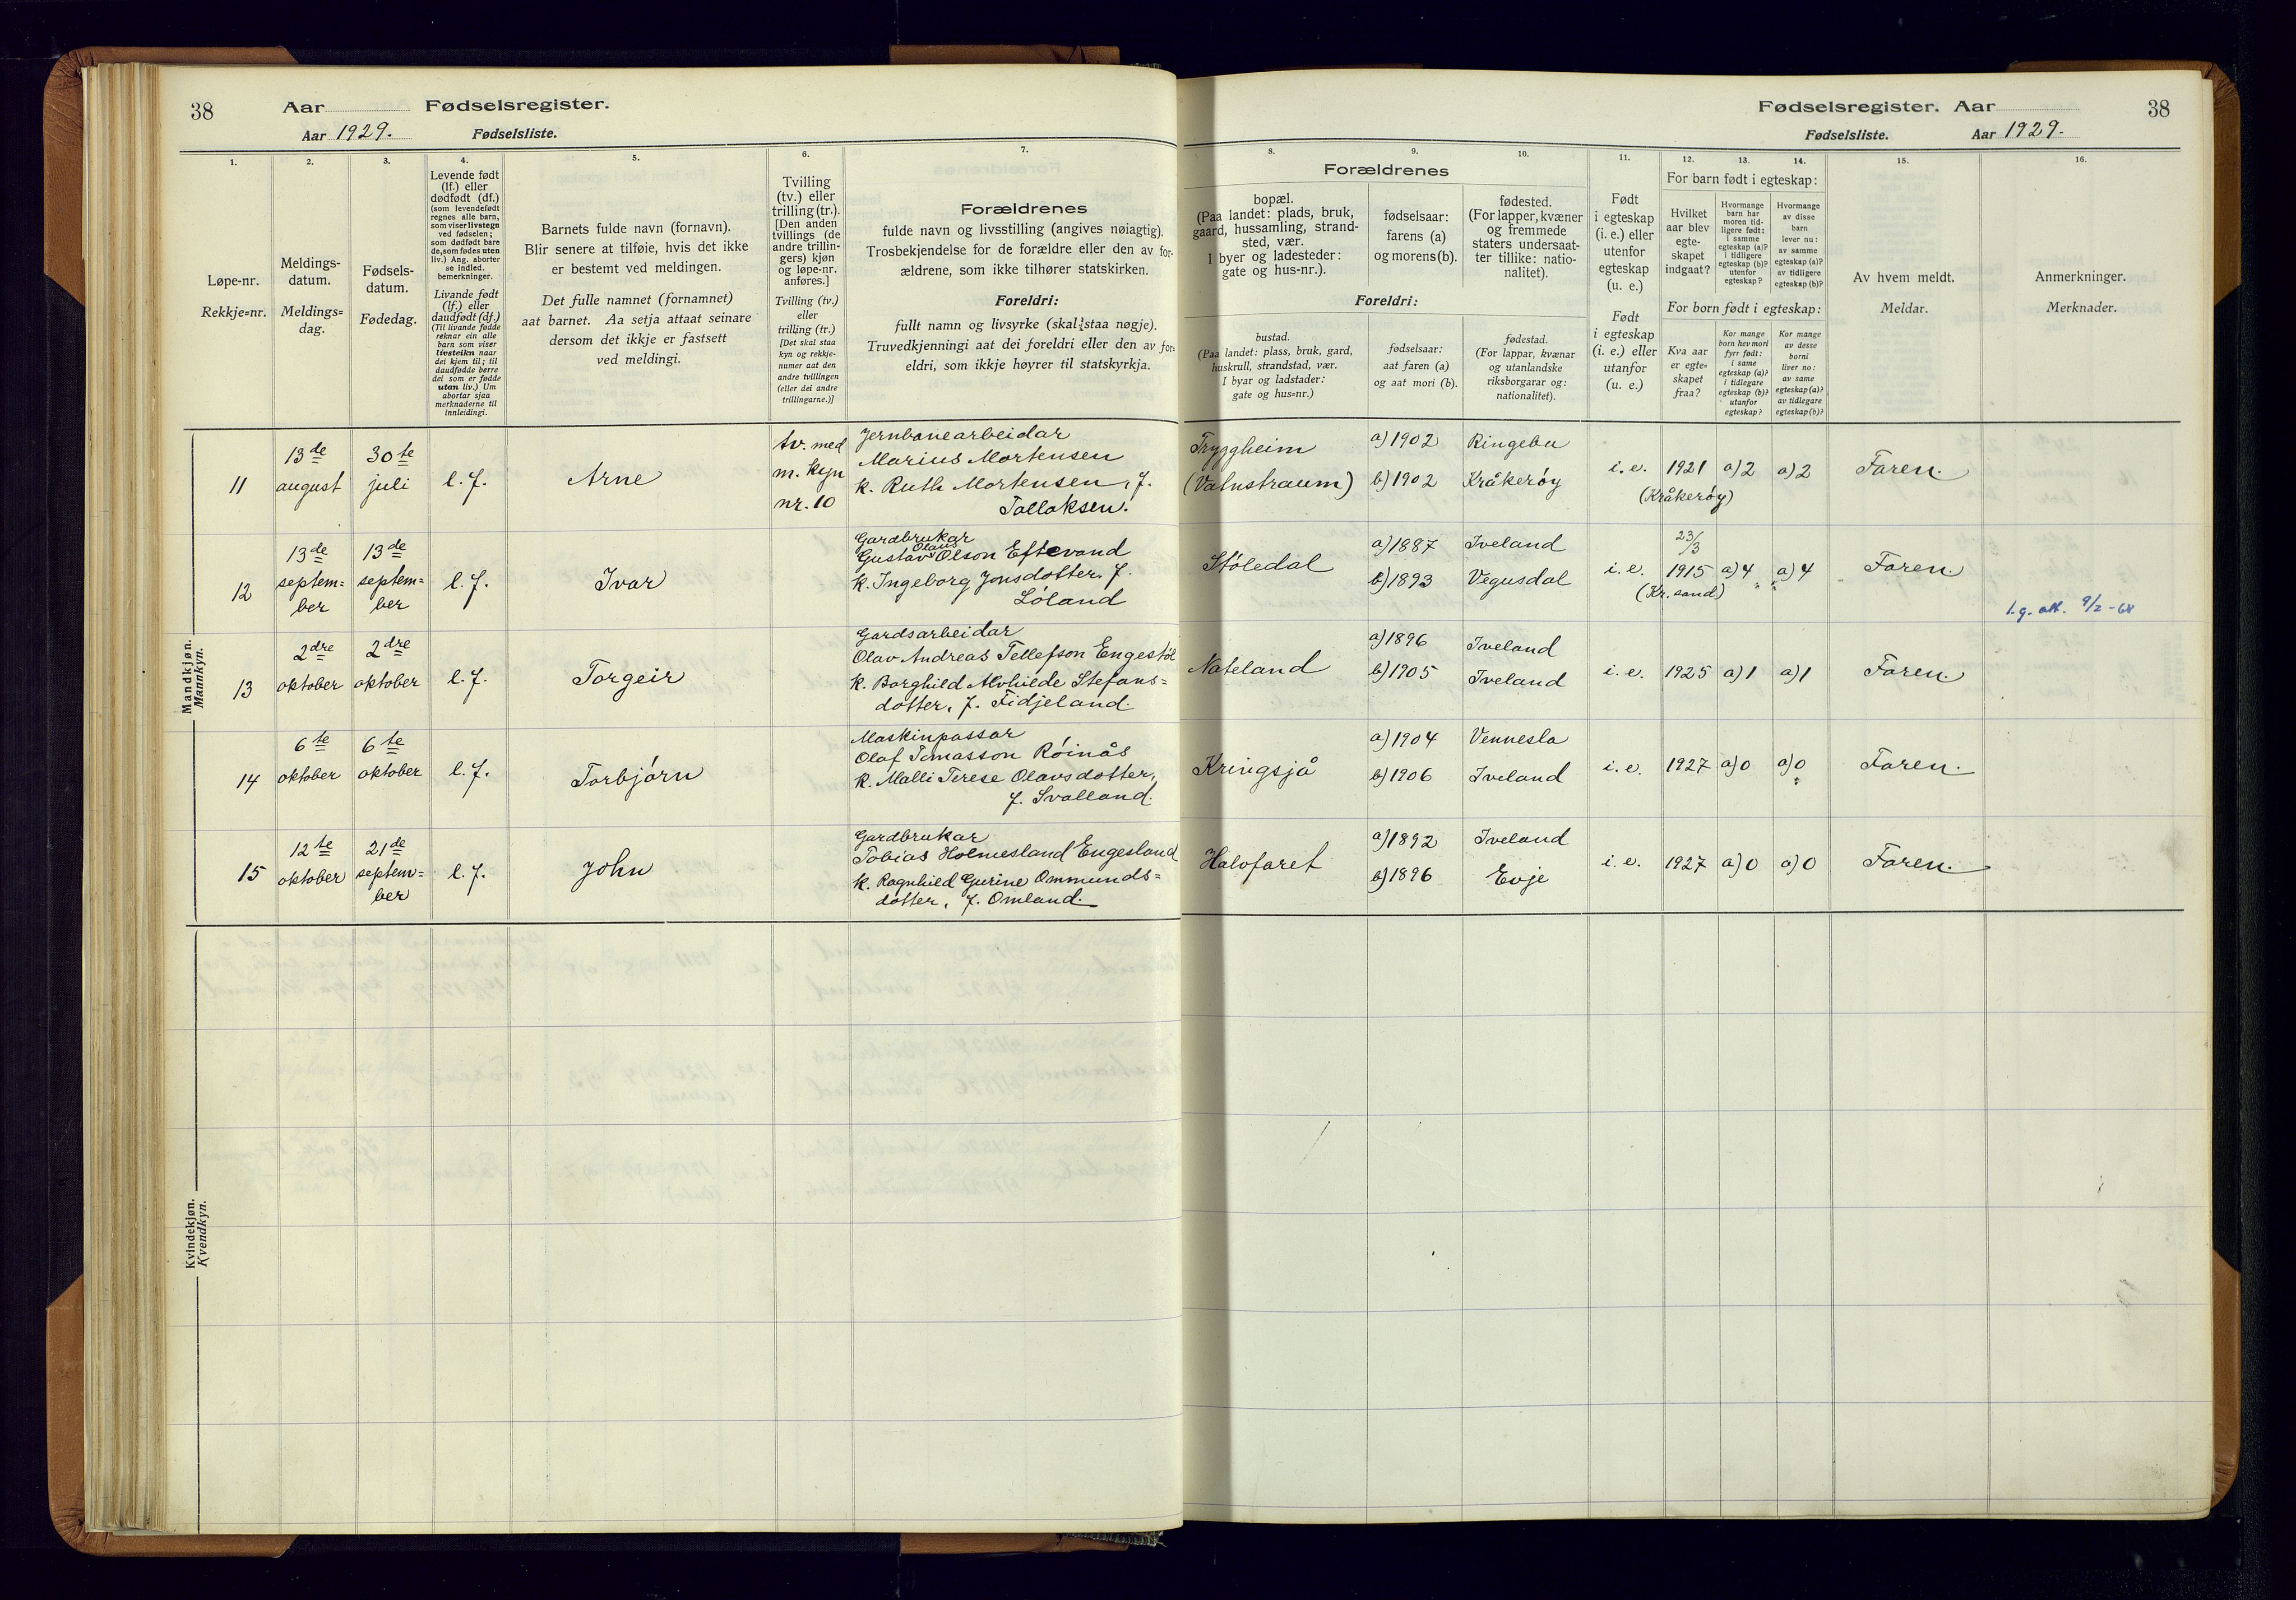 38 Aar Fødselsregister.
Aar 1929. Fødselsliste.
Fødselsregister. Aar 38
Fødselsliste. Aar 1929.
1. 2. 3. 4. 5. 6. 7.
Løpe-nr.
Rekkje=nr.
Meldings-
datum.
Meldings=
dag.
Fødsels-
datum.
Fødedag.
Levende født
(lf.) eller
dødfødt (df.)
(som levendefødt
regnes alle barn,
som viser livstegn
ved fødselen;
som dødfødt bare
de, som fødes uten
liv.) Ang. aborter
se indled.
bemerkninger.
Livande født
(lf.) eller
daudfødt (df.)
(Til livande fødde
reknar ein alle
barn som viser
livsteikn naar
dei kjem til; til
daudfødde berre
dei som er fødde
utan liv.) Um
abortar sjaa
merknaderne til
innleidingi.
Barnets fulde navn (fornavn).
Blir senere at tilføie, hvis det ikke
er bestemt ved meldingen.
Det fulle namnet (fornamnet)
aat barnet. Aa setja attaat seinare
dersom det ikkje er fastsett
ved meldingi.
Tvilling
(tv.) eller
trilling (tr.).
[Den anden
tvillings (de
andre trillin-
gers) kjøn
og løpe-nr.
anføres.]
Tvilling (tv.)
eller
trilling (tr.)
[Det skal staa
kyn og rekkje-
numer aat den
andre tvillingen
(eller dei andre
trillingarne.)]
Forældrenes
fulde navn og livsstilling (angives nøiagtig).
Trosbekjendelse for de forældre eller den av for-
ældrene, som ikke tilhører statskirken.
Foreldri:
fullt namn og livsyrke (skal staa nøgje).
Truvedkjenningi aat dei foreldri eller den av for-
eldri, som ikkje høyrer til statskyrkja.
8. 9. 10. 11. 12. 13. 14. 15. 16.
Forældrenes
bopæl.
(Paa landet: plads, bruk,
gaard, hussamling, strand-
sted, vær.
I byer og ladesteder:
gate og hus-nr.).
fødselsaar:
farens (a)
og morens (b).
fødested.
(For lapper, kvæner
og fremmede
staters undersaat-
ter tillike: natio-
nalitet).
Foreldri:
bustad.
(Paa landet: plass, bruk, gard,
huskrull, strandstad, vær.
I byar og ladstader:
gate og hus=nr.)
fødselsaar:
aat faren (a)
og aat mori (b).
fødestad.
(For lappar, kvænar
og utanlandske
riksborgarar og:
nationalitet).
Født
i egteskap
(i. e.) eller
utenfor
egteskap
(u. e.)
Født
i egteskap
(i. e.) eller
utanfor
(u. e.)
For barn født i egteskap:
Hvilket
aar blev
egte-
skapet
indgaat?
Hvormange
barn har
moren tid-
ligere født:
i samme
egteskap (a)?
i tidligere
egteskap (b)?
utenfor
egteskap?
Hvormange
av disse
barn
lever nu:
av samme
egteskap (a)?
av tidligere
egteskap (b)?
For born født i egteskap:
Kva aar
er egte=
skapet
fraa?
Kor mange
born hev mori
fyrr født:
i same
egteskap (a)?
i tidlegare
egteskap (b)?
utanfor
egteskap?
Kor mange
av desse
borni
liver no:
av same
egteskap (a)?
av tidlegare
egteskap (b)?
Av hvem meldt.
Meldar.
Anmerkninger.
Merknader.
Mandkjøn.
Mannkyn.
11
13de
august
30te
juli
l. f.
Arne
tv. med
m. kyn
nr. 10
Jernbanearbeidar
Marius Mortensen
k. Ruth Mortensen, f.
Tallaksen.
Tryggheim
(Vatnstraum)
a) 1902
b) 1902
Ringebu
Kråkerøy
i. e. 1921 a) 2 a) 2 Faren.
(Kråkerøy)
12
13de
septem=
ber
13de
septem=
ber
l. f.
Ivar
Gardbrukar
Olaus
Gustav Olson Eftevand
k. Ingeborg Jonsdotter, f.
Løland
Støledal
a) 1887
b) 1893
Iveland
Vegusdal
23/3
i. e. 1915 a) 4 a) 4 Faren.
(Kr. sand)
l.g. att. 9/2 - 68
13
2dre
oktober
2dre
oktober
l. f.
Torgeir
Gardsarbeidar
Olav Andreas Tellefson Engestøl
k. Borghild Alvhilde Stefans=
dotter, f. Fidjeland.
Nateland
a) 1896
b) 1905
Iveland
Iveland
i. e. 1925 a) 1 a) 1 Faren.
14
6te
oktober
6te
oktober
l. f.
Torbjørn
Maskinpassar
Olaf Temasson Røinås
k. Malli Terese Olavsdotter,
f. Svalland.
Kringsjå
a) 1904
b) 1906
Vennesla
Iveland
i. e. 1927 a) 0 a) 0 Faren.
15
12te
oktober
21de
septem=
ber
l. f.
John
Gardbrukar
Tobias Holmesland Engesland
k. Ragnhild Gurine Ommunds=
dotter, f. Omland.
Halvfaret
a) 1892
b) 1896
Iveland
Evje
i. e. 1927 a) 0 a) 0 Faren.
Kvindekjøn.
Kvendkyn.